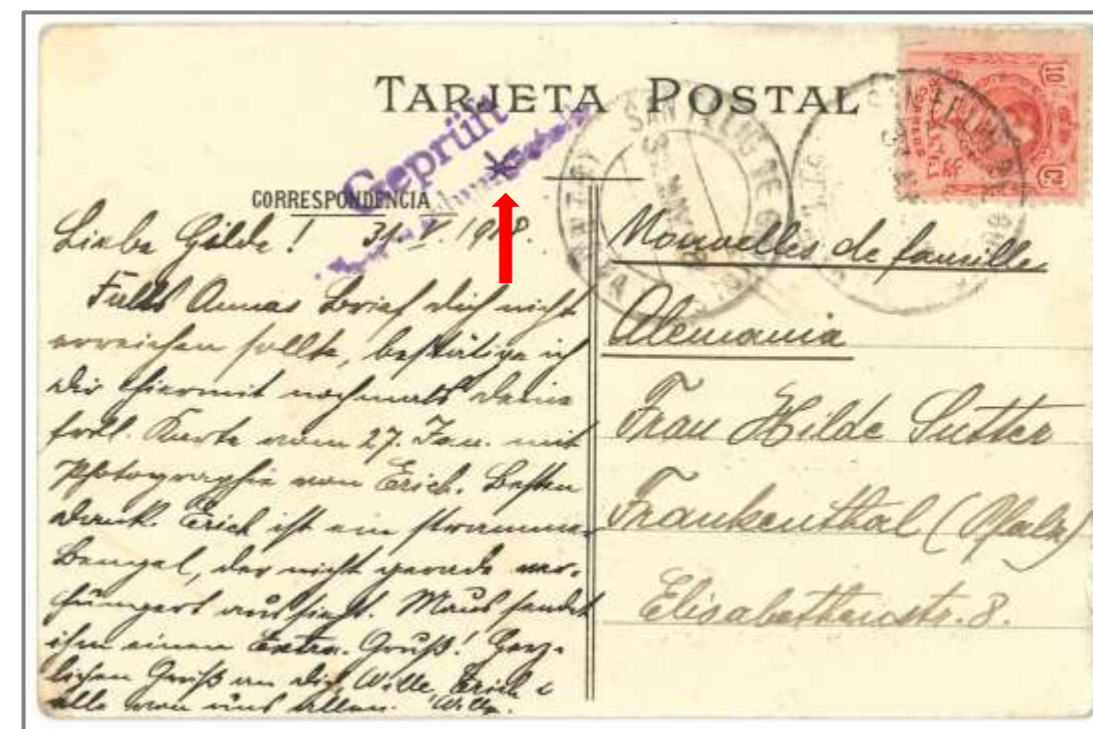 TARJETA POSTAL
Geprüft
CORRESPONDENCIA
Liebe Hilde! 31. V. 1918.
Falls Annas Brief dich nicht
erreichen sollte, bestätige ich
dir hiermit nochmals deine
frdl. Karte vom 27. Jan. mit
Photographie von Erich. Besten
Dank. Erich ist ein strammer
Bengel, der nicht gerade ver-
hungert aussieht. Maus sendet
ihm einen Extra-Gruß! Herz-
lichen Gruß an dich, Wille, Erich &
alle von uns allen. Willy.
Nouvelles de famille
Alemania
Frau Hilde Sutter
Frankenthal (Pfalz)
Elisabethenstr. 8.
SAN FELIU DE
CORREOS
10 Cs